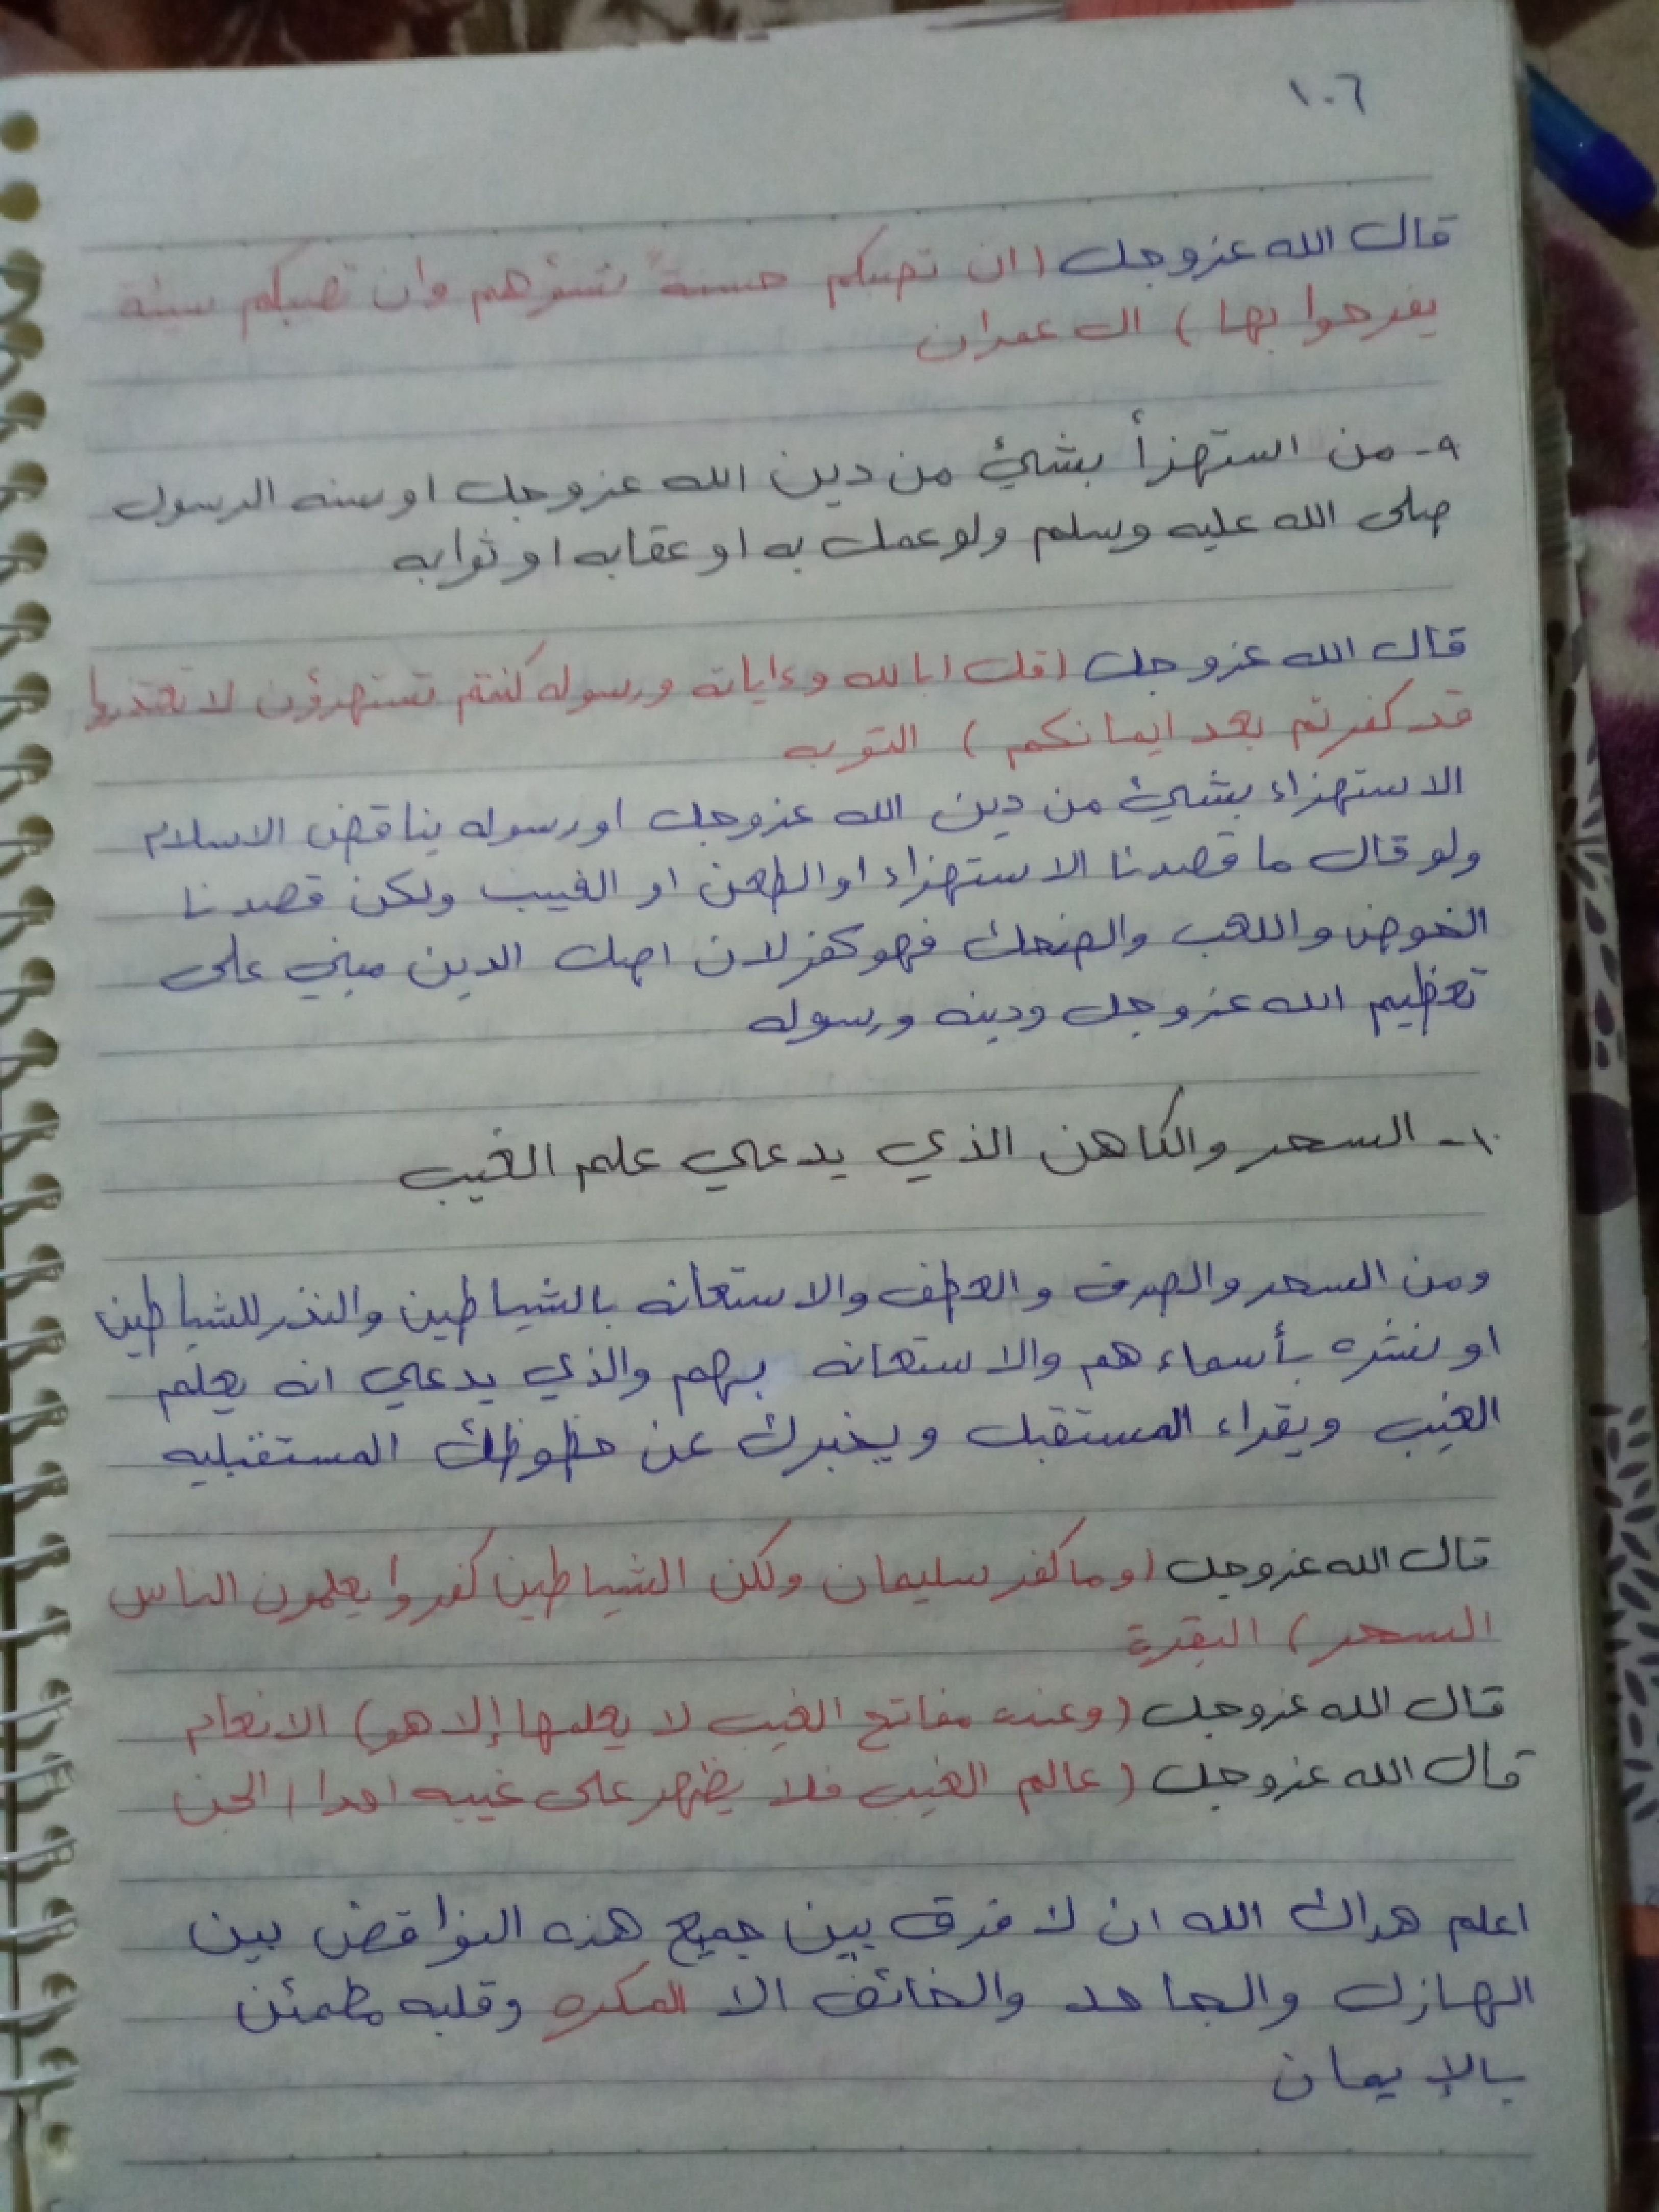 ١٠٦
قال الله عزوجل (ان تصبكم حسنة تسؤهم وان تصبكم سيئة
يفرحوا بها) ال عمران
٩- من استهزأ بشيئ من دين الله عزوجل او سنه الرسول
صلى الله عليه وسلم ولو عمل به او عقابه او ثوابه
قال الله عزوجل (قل ابا لله وءاياته ورسوله كنتم تستهزؤن لا تعتذروا
قد كفرتم بعد ايمانكم) التوبه
الاستهزاء بشيئ من دين الله عزوجل او رسوله يناقض الاسلام
ولو قال ما قصدنا الاستهزاء او الطعن او الغيب ولكن قصدنا
الخوض واللعب والضحك فهو كفر لان اصل الدين مبني على
تعظيم الله عزوجل ودينه ورسوله
١٠- السحر والكاهن الذي يدعي علم الغيب
ومن السحر والصرف والعطف والاستعانه بالشياطين والنذر للشياطين
او نشره بأسماءهم والاستعانه بهم والذي يدعي انه يعلم
الغيب ويقراء المستقبل ويخبرك عن حظوظك المستقبليه
قال الله عزوجل (وما كفر سليمان ولكن الشياطين كفروا يعلمون الناس
السحر) البقرة
قال الله عزوجل (وعنده مفاتح الغيب لا يعلمها إلا هو) الانعام
قال الله عزوجل (عالم الغيب فلا يظهر على غيبه احدا) الجن
اعلم هداك الله ان لا فرق بين جميع هذه النواقض بين
الهازل والجاحد والخائف الا المكره وقلبه مطمئن
بالإيمان